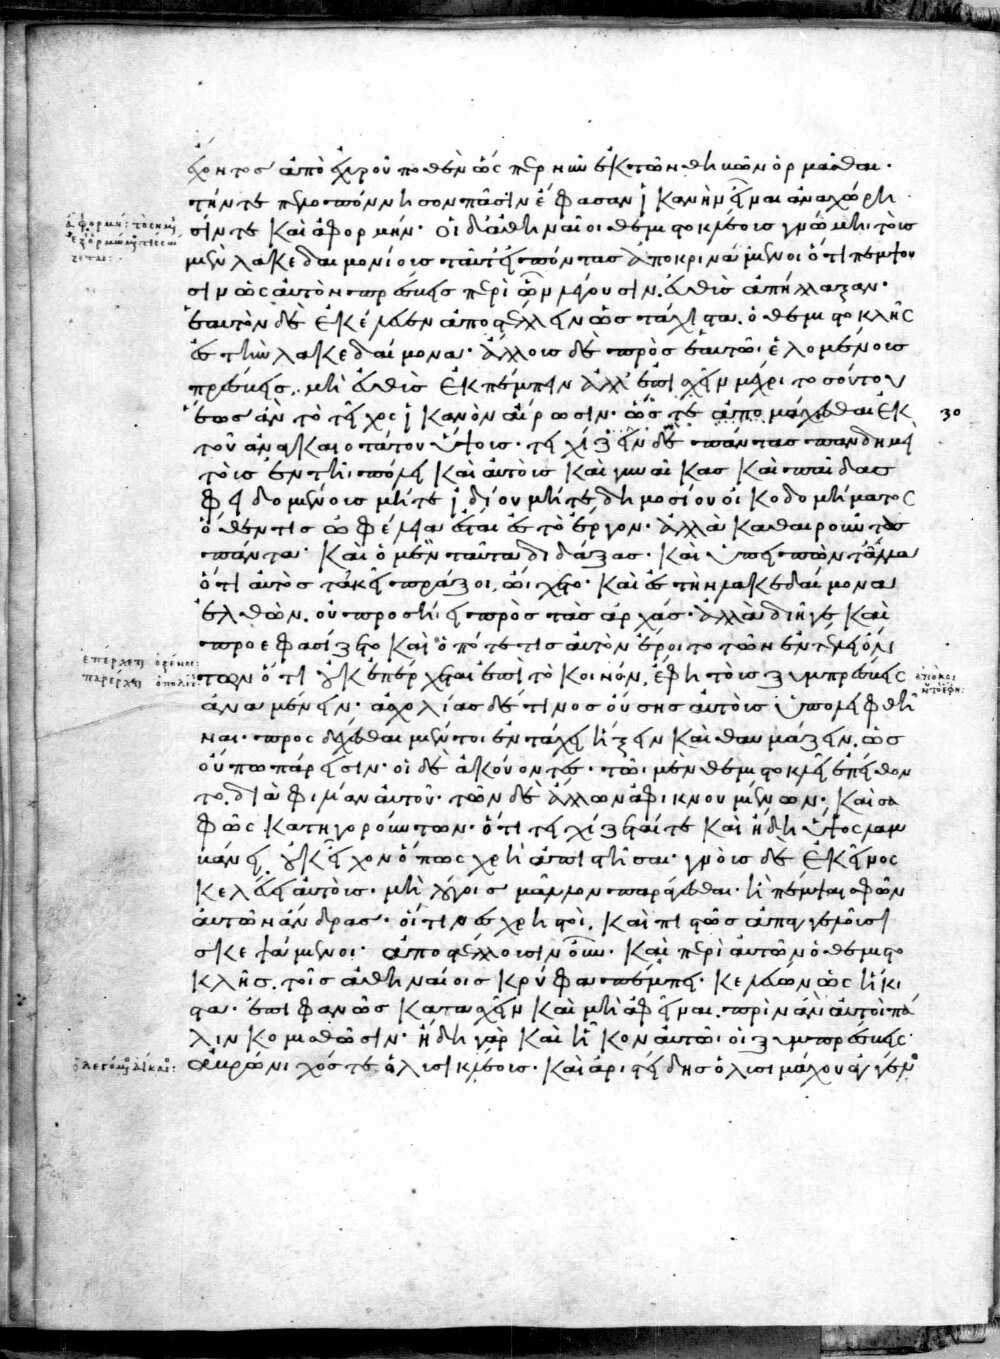 ἔχοντος ἀπὸ ἐχυροῦ ποθεν ὥσπερ νῦν ἐκ τῶν θηβῶν ὁρμᾶσθαι·
τήν τε πελοπόννησον πᾶσιν ἔφασαν ἱκανὴν εἶναι ἀναχώρη
σίν τε καὶ ἀφορμήν· οἱ δ' ἀθηναῖοι θεμιστοκλέους γνώμηι τοὺς
μὲν λακεδαιμονίους ταῦτ' εἰπόντας ἀποκρινάμενοι ὅτι πέμψου
σιν ὡς αὐτοὺς πρέσβεις περὶ ὧν λέγουσιν. εὐθὺς ἀπήλλαξαν·
ἑαυτὸν δὲ ἐκέλευεν ἀποστέλλειν ὡς τάχιστα. ὁ θεμιστοκλῆς
ἐς τὴν λακεδαίμονα· ἄλλους δὲ πρὸς ἑαυτῶι ἑλομένους
πρέσβεις. μὴ εὐθὺς ἐκπέμπειν ἀλλ' ἐπισχεῖν μέχρι τοσούτου
ἕως ἂν τὸ τεῖχος ἱκανὸν αἴρωσιν· ὥστε ἀπομάχεσθαι ἐκ
30
τοῦ ἀναγκαιοτάτου ὕψους· τειχίζειν δὲ πάντας πανδημεὶ
τοὺς ἐν τῆι πόλει καὶ αὐτοὺς καὶ γυναῖκας καὶ παῖδας
φειδομένους μήτε ἰδίου μήτε δημοσίου οἰκοδομήματος
ὅθεν τις ὠφέλεια ἔσται ἐς τὸ ἔργον· ἀλλὰ καθαιροῦντας
πάντα· καὶ ὁ μὲν ταῦτα διδάξας· καὶ ὑπειπὼν τἆλλα
ὅτι αὐτὸς τἀκεῖ πράξοι, ὤιχετο· καὶ ἐς τὴν λακεδαίμονα
ἐλθὼν. οὐ προσήιει πρὸς τὰς ἀρχάς· ἀλλὰ διῆγε καὶ
προεφασίζετο καὶ ὁπότε τις αὐτὸν ἔροιτο τῶν ἐν τέλει ὄν
των ὅτι οὐκ ἐπέρχεται ἐπὶ τὸ κοινόν, ἔφη τοὺς ξυμπρέσβεις
ἀναμένειν· ἀσχολίας δέ τινος οὔσης αὐτοὺς ὑπολειφθῆ
ναι· προσδέχεσθαι μέντοι ἐν τάχει ἥξειν καὶ θαυμάζειν. ὡς
οὔπω πάρεισιν· οἱ δὲ ἀκούοντες· τῶι μὲν θεμιστοκλεῖ ἐπείθον
το. διὰ φιλίαν αὐτοῦ· τῶν δὲ ἄλλων ἀφικνουμένων· καὶ σα
φῶς κατηγορούντων· ὅτι τειχίζεταί τε καὶ ἤδη ὕψος λαμ
βάνει. οὐκ εἶχον ὅπως χρὴ ἀπιστῆσαι· γνοὺς δὲ ἐκεῖνος
κελεύει αὐτοὺς· μὴ λόγοις μᾶλλον παράγεσθαι· ἢ πέμψαι σφῶν
αὐτῶν ἄνδρας· οἵτινες χρηστοὶ, καὶ πιστῶς ἀπαγγελοῦσι
σκεψάμενοι· ἀποστέλλουσιν οὖν· καὶ περὶ αὐτῶν ὁ θεμιστο
κλῆς. τοῖς ἀθηναίοις κρύφα πέμπει· κελεύων ὡς ἥκι
στα· ἐπιφανῶς κατασχεῖν καὶ μὴ ἀφεῖναι. πρὶν ἂν αὐτοὶ πά
λιν κομισθῶσιν· ἤδη γὰρ καὶ ἧκον αὐτῶι οἱ ξυμπρέσβεις·
ἁβρώνιχός τε ὁ λυσικλέους· καὶ ἀριστείδης ὁ λυσιμάχου ἀγγέλλ